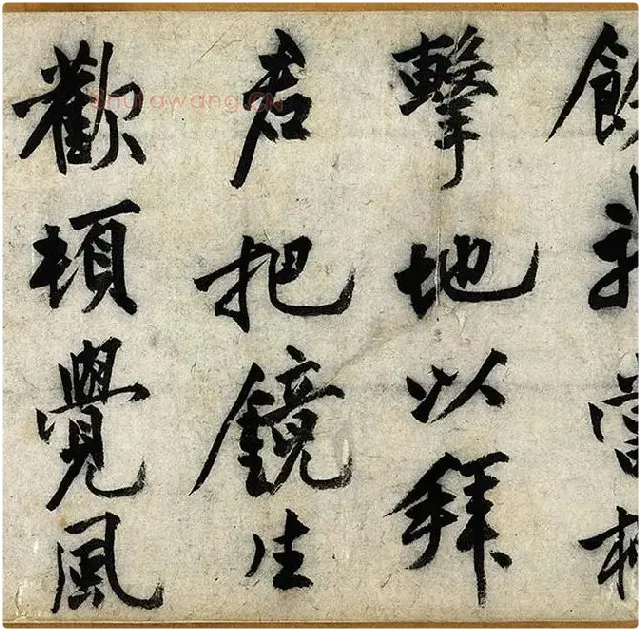 擊地以拜
君把鏡生
歡頓覺風
Shufawang.CN